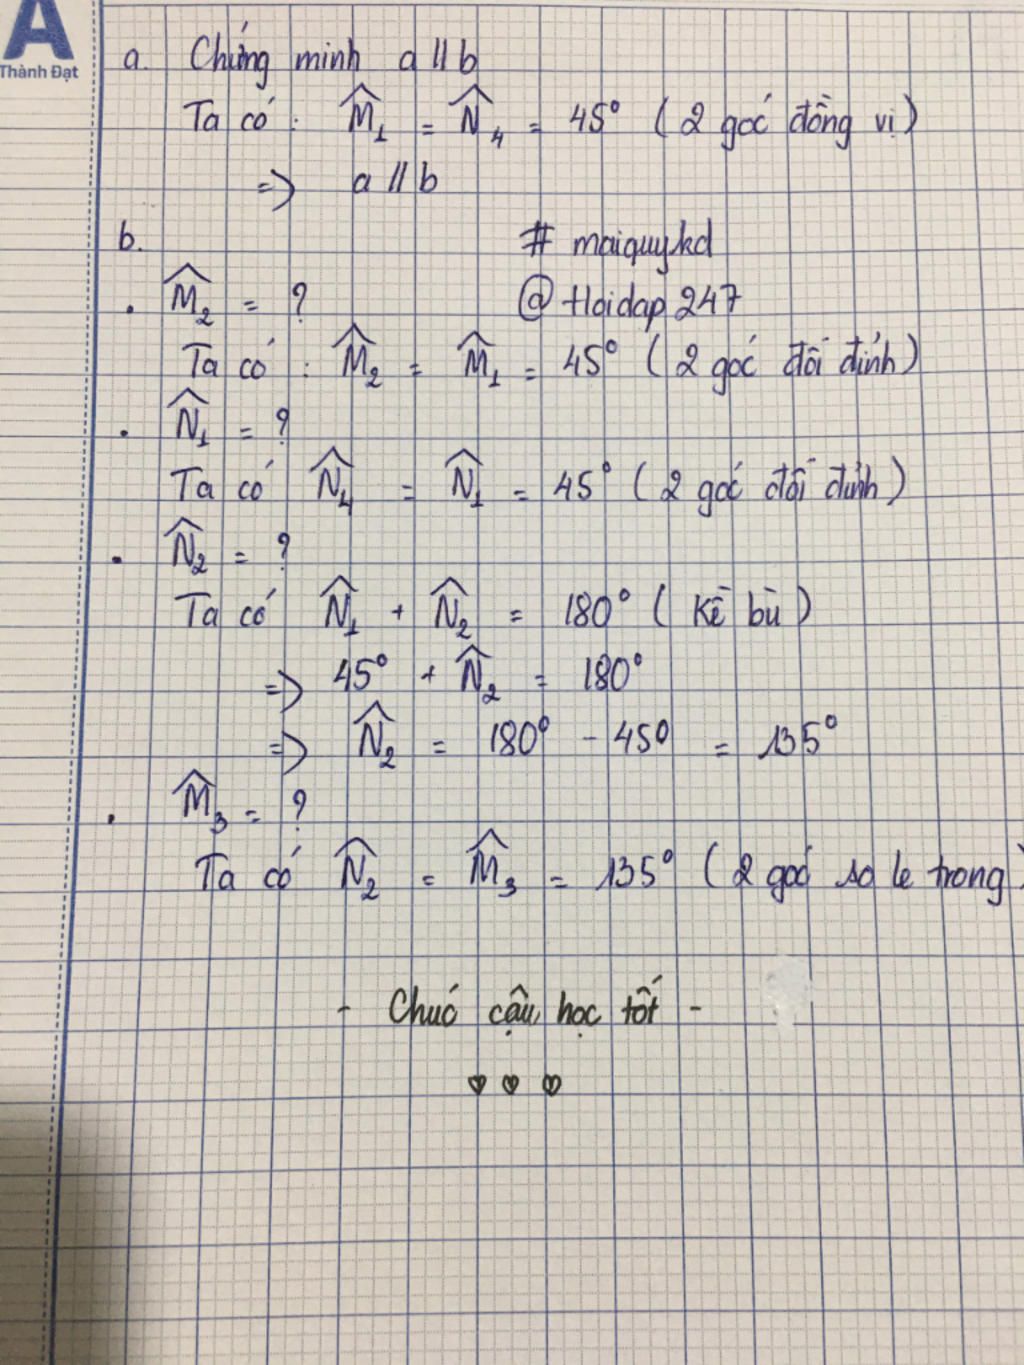 A
Thành Đạt
a. Chứng minh a // b
Ta có : M̂₁ = N̂₄ = 45° ( 2 góc đồng vị )
=> a // b
b.
# maiquykd
• M̂₂ = ?
@ Hoidap 247
Ta có : M̂₂ = M̂₁ = 45° ( 2 góc đối đỉnh )
• N̂₁ = ?
Ta có N̂₄ = N̂₁ = 45° ( 2 góc đối đỉnh )
• N̂₂ = ?
Ta có N̂₁ + N̂₂ = 180° ( Kề bù )
=> 45° + N̂₂ = 180°
=> N̂₂ = 180° - 45° = 135°
• M̂₃ = ?
Ta có N̂₂ = M̂₃ = 135° ( 2 góc so le trong )
- Chúc cậu học tốt -
♡ ♡ ♡